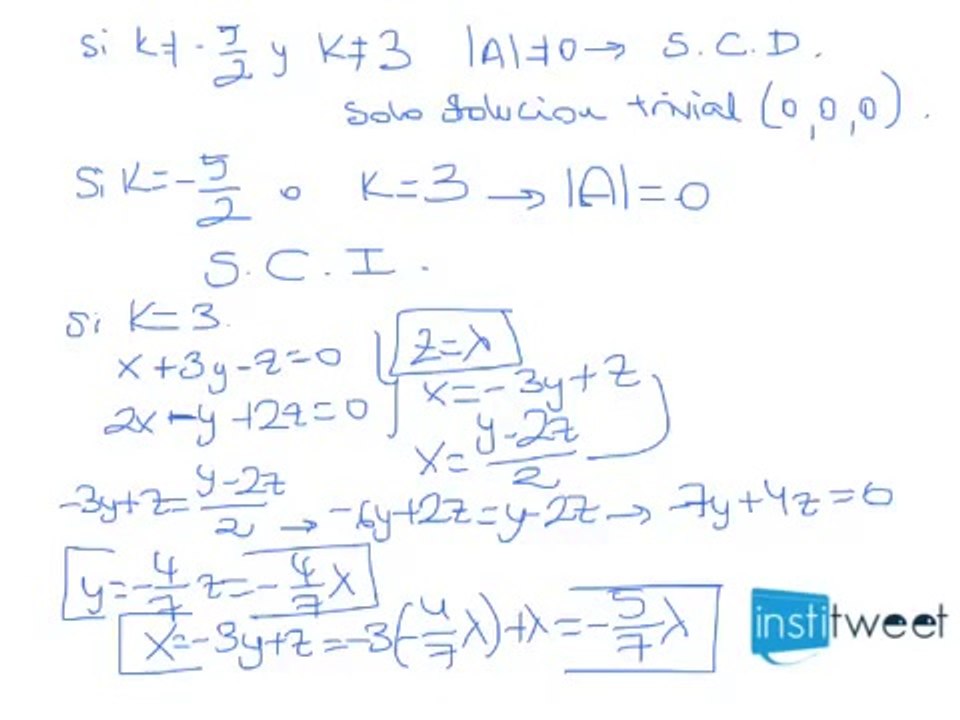 si k≠-5/2 y k≠3 |A|≠0 → S.C.D.
solo solucion trivial (0,0,0).
Si K=-5/2 o K=3 → |A|=0
S.C.I.
si K=3.
x+3y-z=0
2x-y+2z=0
z=λ
x=-3y+z
x=(y-2z)/2
-3y+z=(y-2z)/2 → -6y+2z=y-2z → -7y+4z=0
y=-4/7 z=-4/7 λ
x=-3y+z=-3(-4/7 λ)+λ=-5/7 λ
institweet